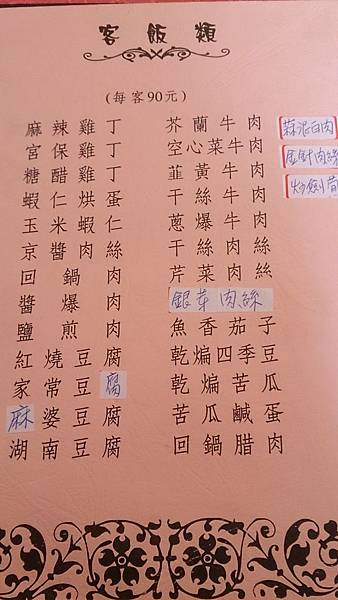 客飯類
(每客90元)
麻辣雞丁
宮保雞丁
糖醋雞丁
蝦仁烘蛋
玉米蝦仁
京醬肉絲
回鍋肉
醬爆肉
鹽煎肉
紅燒豆腐
家常豆腐
麻婆豆腐
湖南豆腐
芥蘭牛肉
空心菜牛肉
韮黃牛肉
干絲牛肉
蔥爆牛肉
干絲肉絲
芹菜肉絲
銀芽肉絲
魚香茄子
乾煸四季豆
乾煸苦瓜
苦瓜鹹蛋
回鍋腊肉
蒜泥白肉
金針肉絲